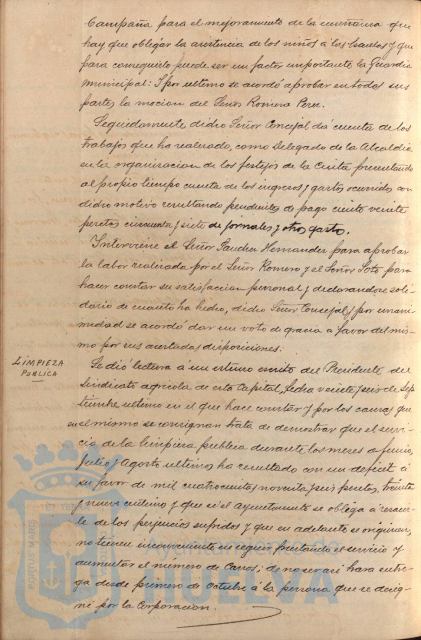 Campaña para el mejoramiento de la enseñanza que
hay que obligar la asistencia de los niños a las Escuelas y que
para conseguirlo puede ser un factor importante la Guardia
Municipal: Y por ultimo se acordó aprobar en todas sus
partes la mocion del Señor Romero Perez.
Seguidamente dicho Señor Concejal dá cuenta de los
trabajos que ha realizado, como Delegado de la Alcaldia
en la organizacion de los festejos de la Cinta presentando
al propio tiempo cuenta de los ingresos y gastos ocurridos con
dicho motivo resultando pendientes de pago ciento veinte
pesetas cincuenta y siete de jornales y otros gastos.
Interviene el Señor Sanchez Hernandez para aprobar
la labor realizada por el Señor Romero y el Señor Soto para
hacer constar su satisfaccion personal y declarandose soli-
dario de cuanto ha hecho, dicho Señor Concejal y por unani-
midad se acordó dar un voto de gracia a favor del mis-
mo por sus acertadas disposiciones.
LIMPIEZA
PUBLICA
Se dió lectura a un escrito del Presidente del
Sindicato agricola de esta Capital, fecha veinte y seis de Sep-
tiembre ultimo en el que hace constar y por las causas que
en el mismo se consignan trata de demostrar que el servi-
cio de la limpieza publica durante los meses de Junio,
Julio y Agosto ultimos ha resultado con un deficit á
su favor de mil cuatrocientas noventa y seis pesetas, treinta
y nueve centimos y que si el ayuntamiento se obliga a resarcir-
le de los perjuicios sufridos y que en adelante se originen,
no tienen inconveniente en seguir prestando el servicio y
aumentar el numero de Carros; de no ser asi hara entre-
ga desde primero de Octubre á la persona que se desig-
ne por la Corporacion.